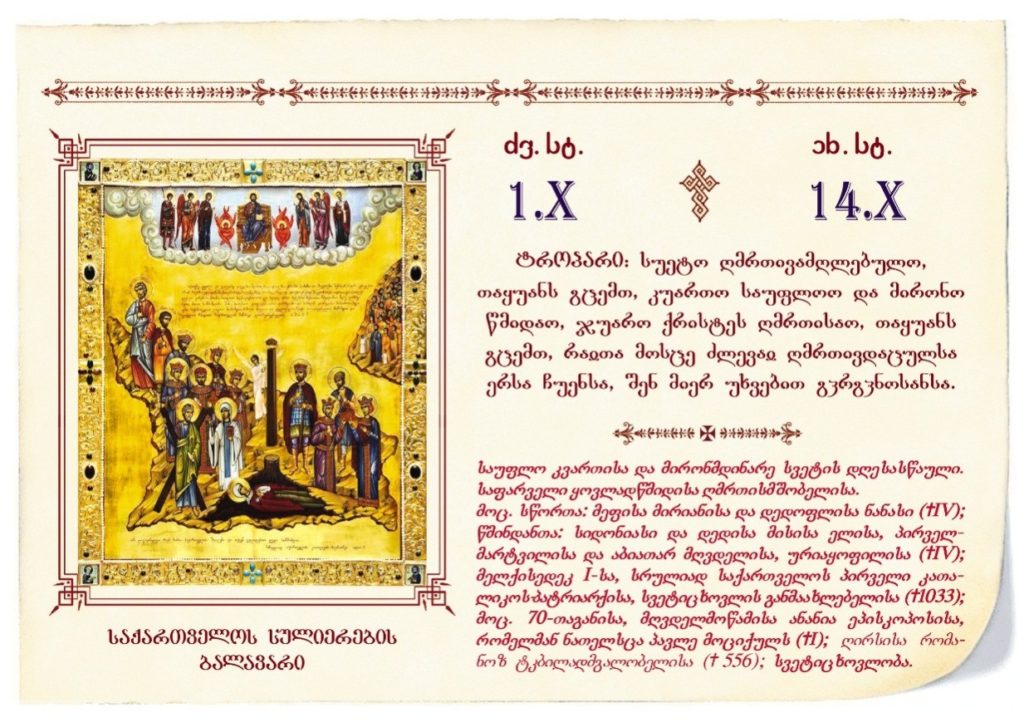 ძვ. სტ.
ახ. სტ.
1.X
14.X
ტროპარი: სუეტო ღმრთივამღლებულო,
თაყუანს გცემთ, კუართო საუფლოო და მირონო
წმიდაო, ჯუარო ქრისტეს ღმრთისაო, თაყუანს
გცემთ, რაჲთა მოსცე ძლევაჲ ღმრთივდაცულსა
ერსა ჩუენსა, შენ მიერ უხვებით გჳრგჳნოსანსა.
საუფლო კვართისა და მირონმდინარე სვეტის დღესასწაული.
საფარველი ყოვლადწმიდისა ღმრთისმშობელისა.
მოც. სწორთა: მეფისა მირიანისა და დედოფლისა ნანასი (†IV);
წმინდანთა: სიდონიასი და დედისა მისისა ელისა, პირველ-
მარტვილისა და აბიათარ მღვდელისა, ურიაყოფილისა (†IV);
მელქისედეკ I-სა, სრულიად საქართველოს პირველი კათა-
ლიკოს-პატრიარქისა, სვეტიცხოვლის განმაახლებელისა (†1033);
მოც. 70-თაგანისა, მღვდელმოწამისა ანანია ეპისკოპოსისა,
რომელმან ნათელსცა პავლე მოციქულს (†I); ღირსისა რომა-
ნოზ ტკბილადმგალობელისა († 556); სვეტიცხოვლობა.
საქართველოს სულიერების
ბალავარი